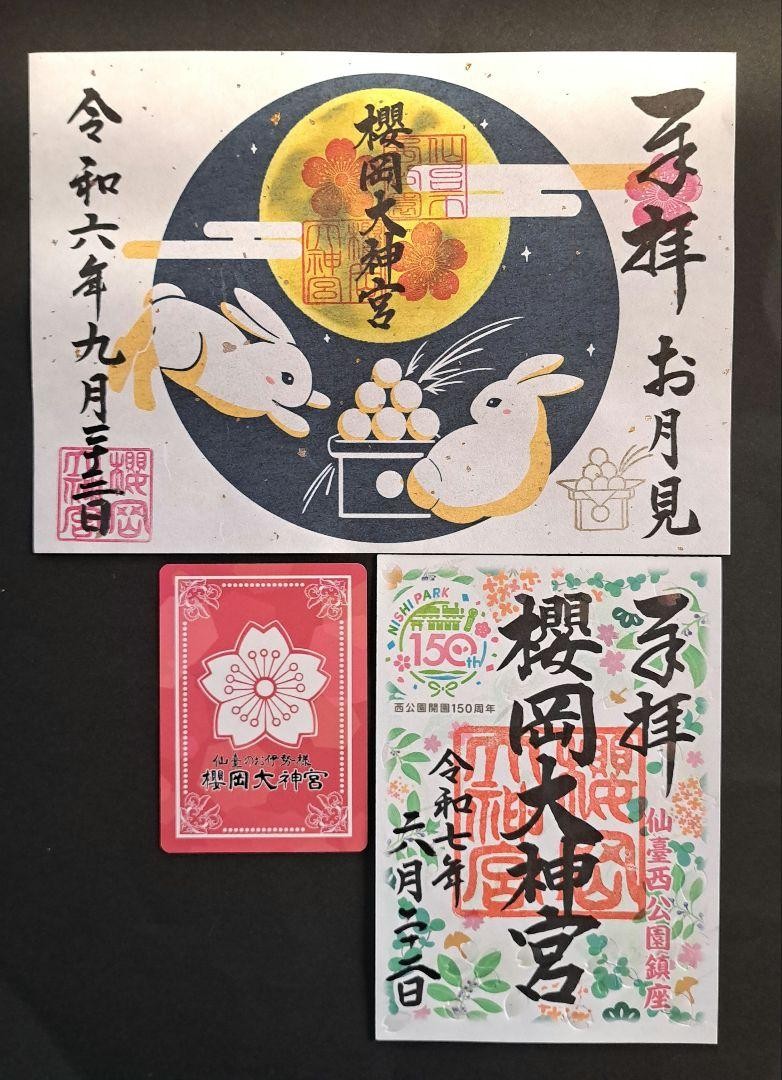 奉拝
お月見
櫻岡大神宮
令和六年九月二十三日
櫻岡大神宮
仙臺のお伊勢様
櫻岡大神宮
NISHI PARK
150th
西公園開園150周年
奉拝
仙臺西公園鎮座
櫻岡大神宮
櫻岡大神宮
令和七年
六月二十二日